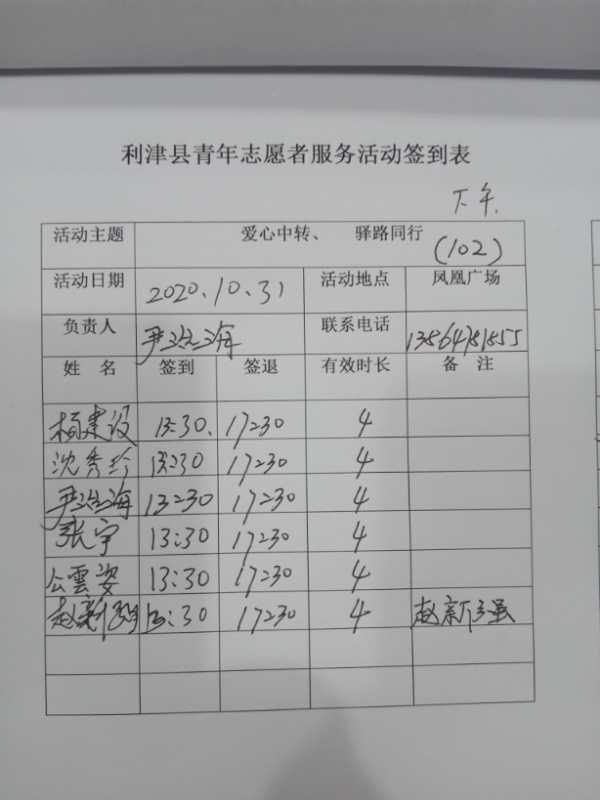 利津县青年志愿者服务活动签到表
下午.
活动主题 爱心中转、 驿路同行 (102)
活动日期 2020.10.31 活动地点 凤凰广场
负责人 海 联系电话
姓 名 签到 签退 有效时长 备 注
杨建设 13:30. 17:30 4
沈秀珍 13:30 17:30 4
海 13:30 17:30 4
张宇 13:30 17:30 4
公雲姿 13:30 17:30 4
赵新强 13:30 17:30 4 赵新强